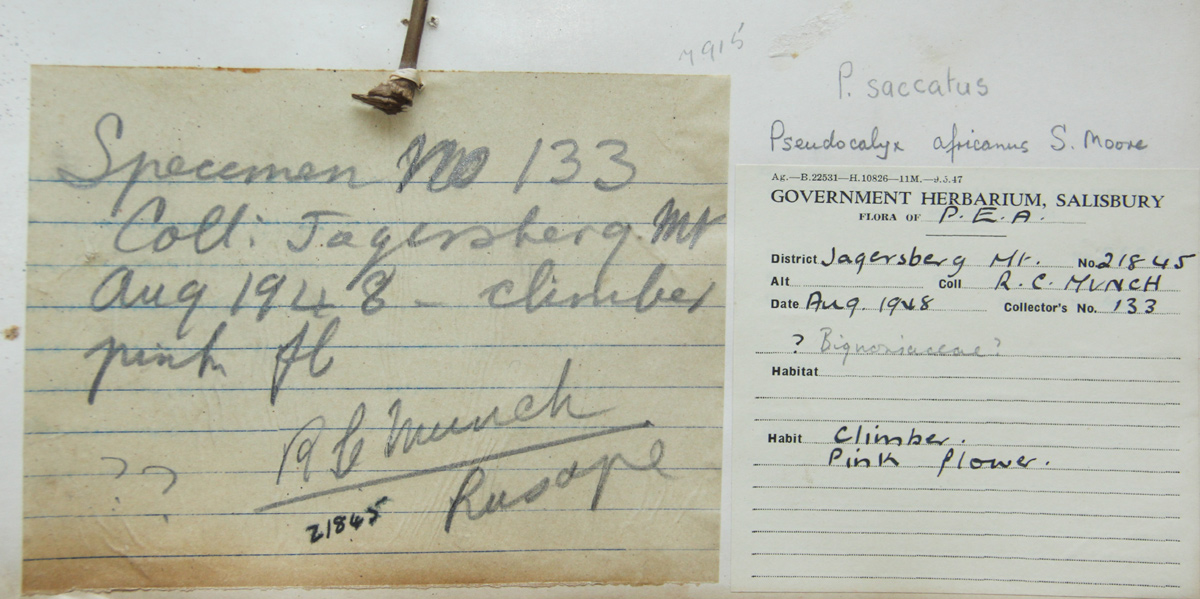 Specimen No 133
Coll: Jagersberg Mt
Aug 1948 - climber
pink fl
R C Munch
? ?
Rusape
21845
7915
P. saccatus
Pseudocalyx africanus S. Moore
Ag.—B.22531—H.10826—11M.—9.5.47
GOVERNMENT HERBARIUM, SALISBURY
FLORA OF P.E.A.
District Jagersberg Mt. No. 21845
Alt Coll R.C. MUNCH
Date Aug. 1948 Collector's No. 133
? Bignoniaceae?
Habitat
Habit Climber.
Pink flower.